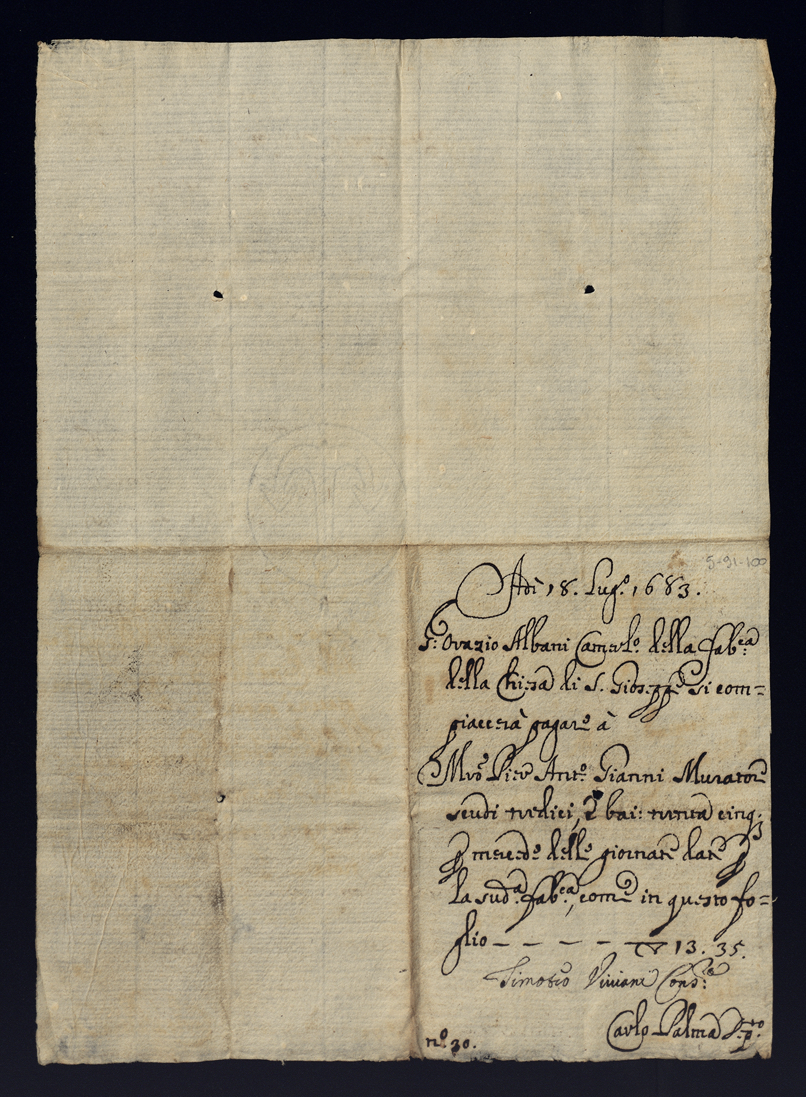 5-91-100
Adi 18. Lug.o 1683.
S.r Orazio Albani Camerl.o della fab.ca
della Chiesa di S. Gioseppe si com=
piacerà pagare à
M.ro Pier Ant.o Gianni Muratore
scudi tredici, e bai: trenta cinq.
p mercede delle giornate date p
la sud.a fab.ca, come in questo fo=
glio — — — — 13. 35.
Timoteo Viviani Cons.re
Carlo Palma
n.o 30.